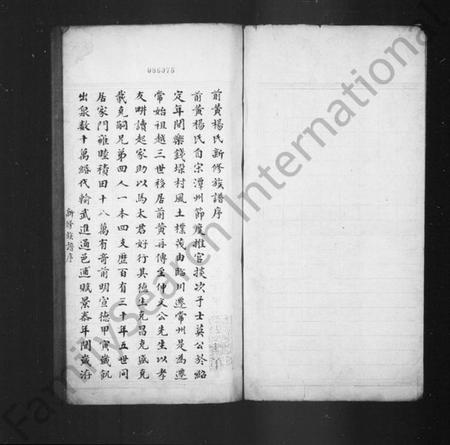 086075
前黄楊氏新修族譜序
前黄楊氏自宋潭州節度推官掞次子士莫公於紹
定年間樂錢堽村風土樸茂由臨川遷常州是為遷
常始祖越三世移居前黄再傳至仲文公先生以孝
友耕讀起家助以馬太君好行其德生克昌克盛克
義克嗣兄弟四人一本四支歷百有三十年五世同
居家門雍睦積田十八萬有奇前明宣德甲寅歲飢
出粟數十萬緡代輸武進通邑逋賦景泰年間歲洊
新修族譜序
FamilySearch International